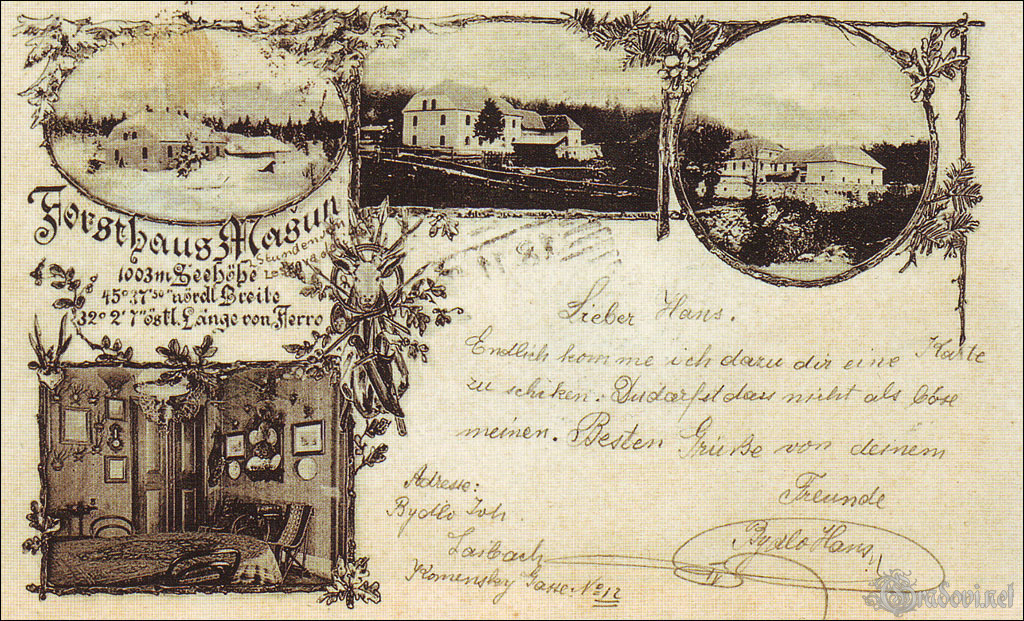 Forsthaus Mašun
Stunden
1003m Seehöhe
45° 37' 30" nördl. Breite
32° 2' 7" östl. Länge von Ferro
Lieber Hans.
Endlich komme ich dazu dir eine Karte
zu schiken. Du darfst dass nicht als böse
meinen. Besten Grüße von deinem
Freunde
Bydlo Hans
Adresse:
Bydlo Joh.
Laibach
Komensky Gasse No 12
Gradovi.net